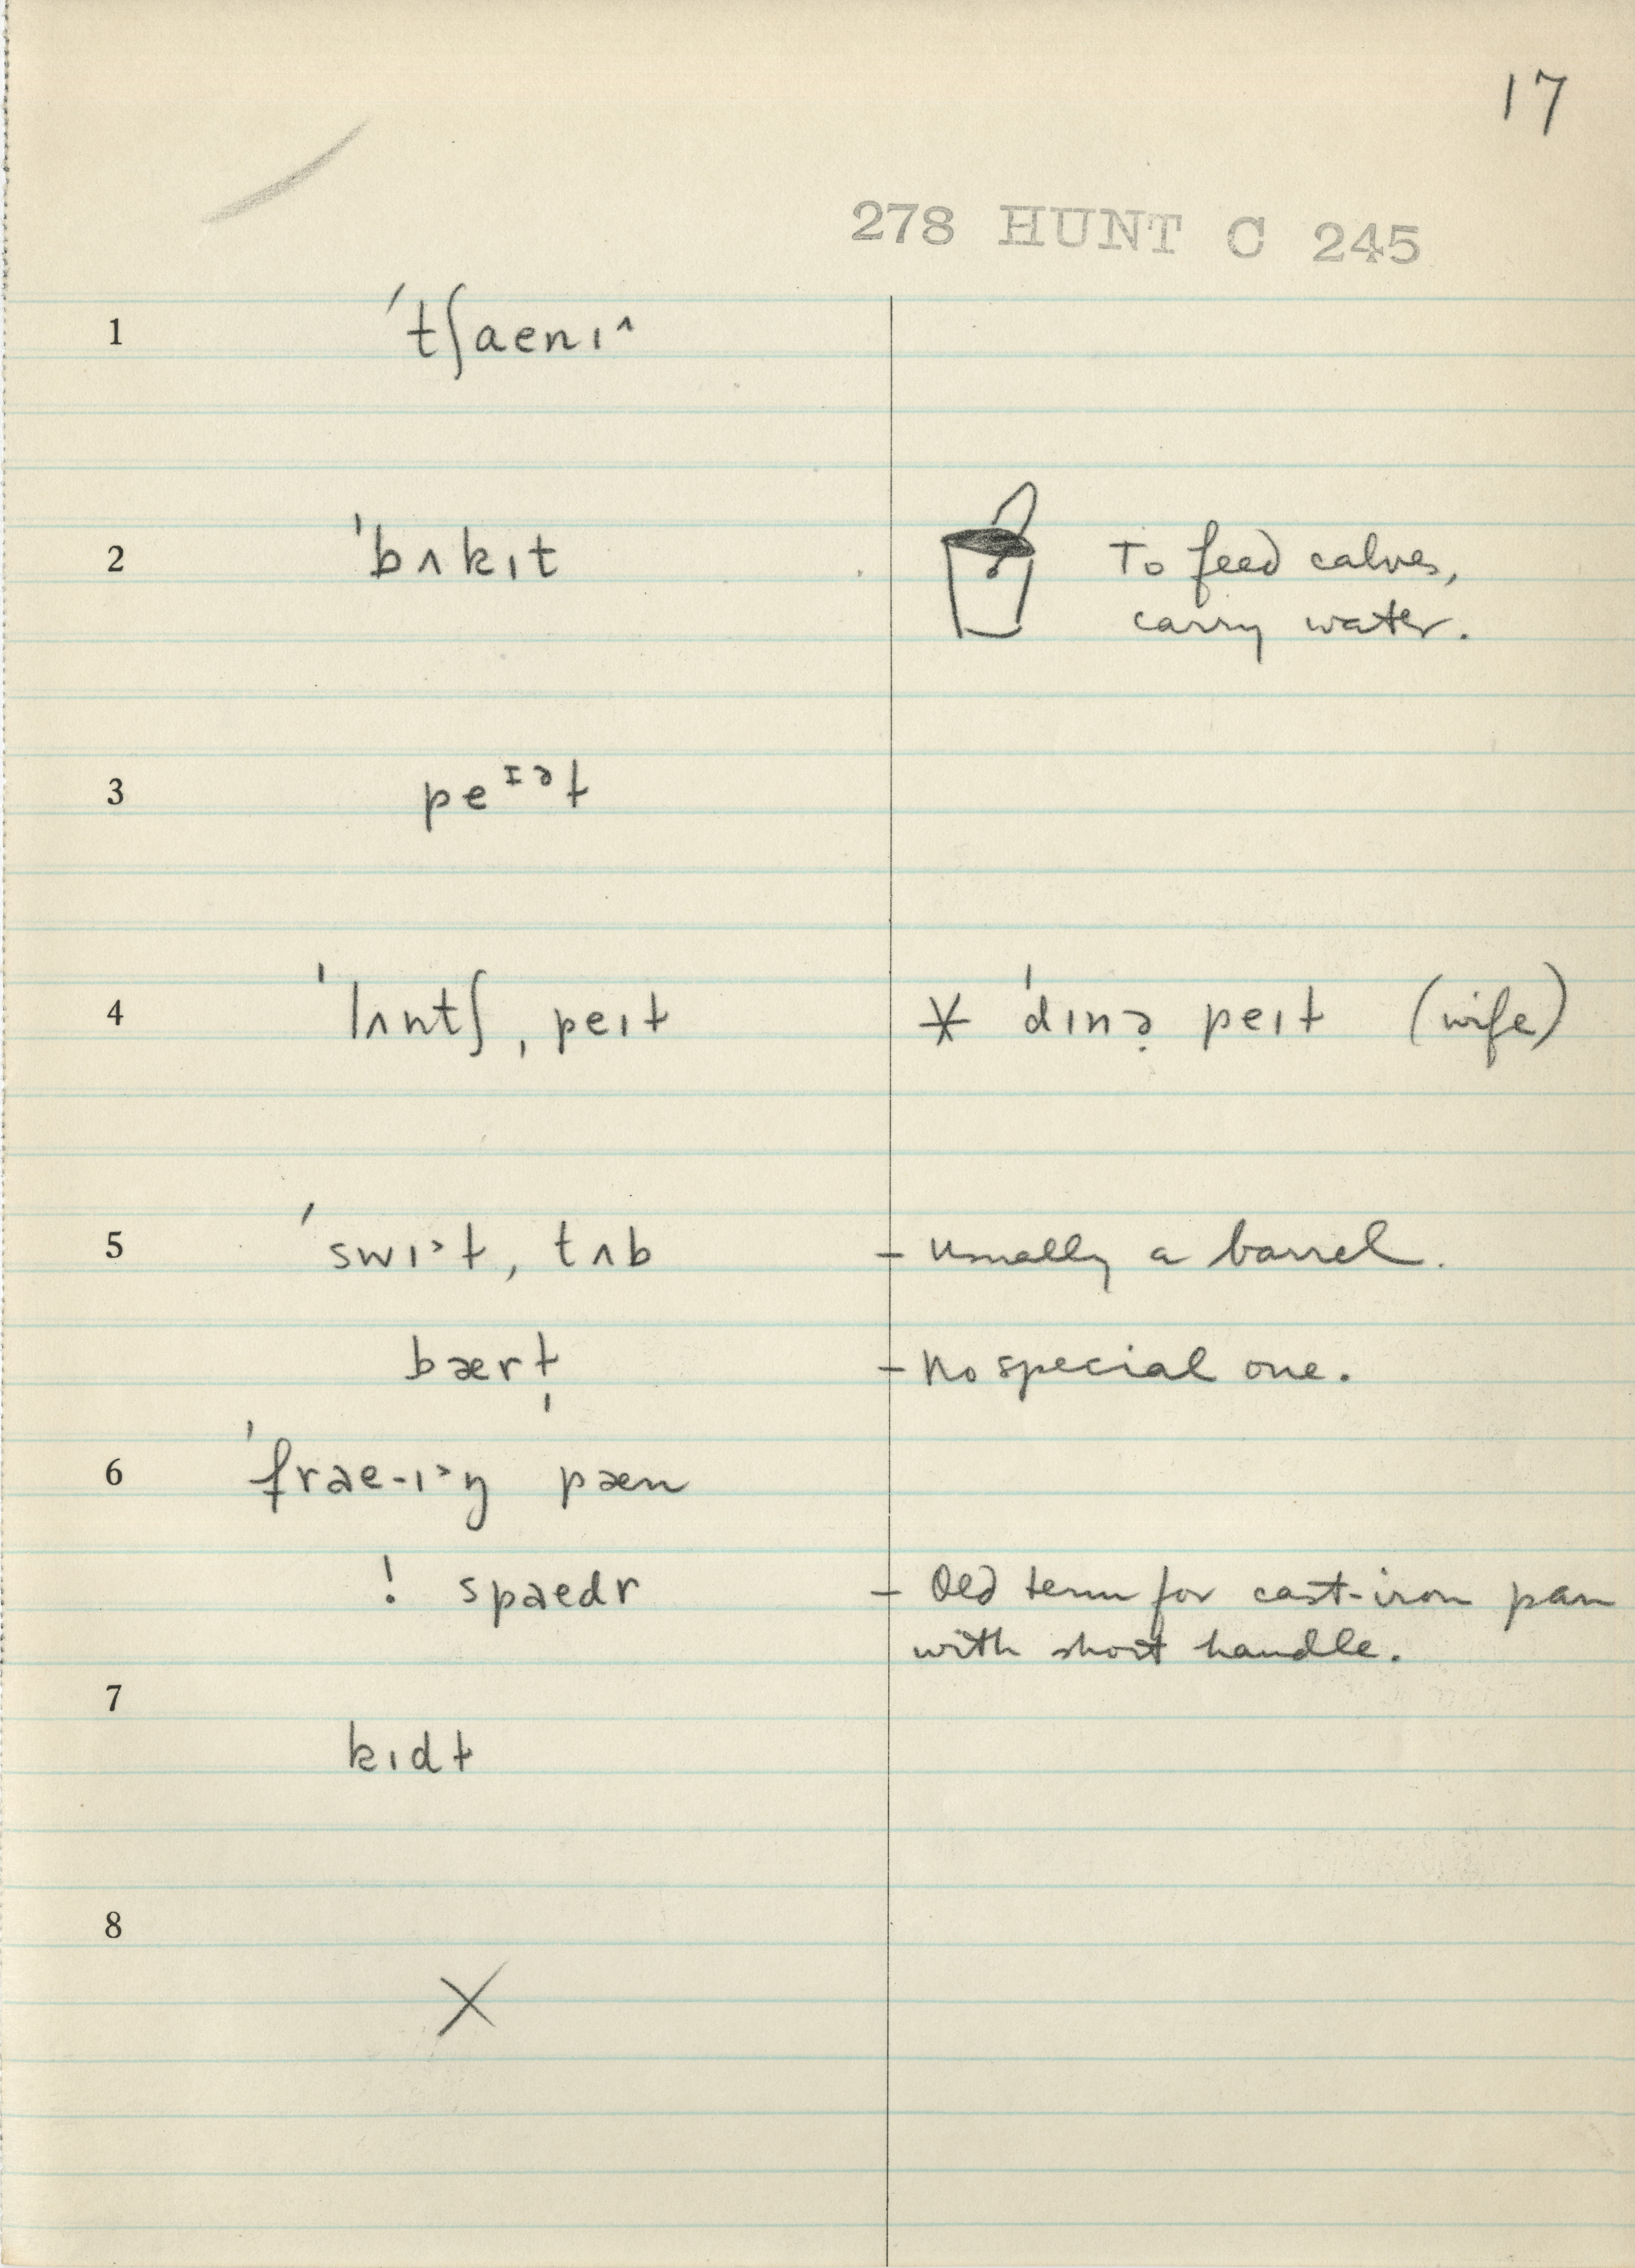 17
278 HUNT C 245
1 ˈtʃaenɪ^
2 ˈbʌkɪt To feed calves,
carry water.
3 peᶦᵊɫ
4 ˈlʌntʃˌpeɪɫ * ˈdɪnə̣ peɪɫ (wife)
5 ˈswɪ˃ɫˌtʌb – Usually a barrel.
bærɫ̩ – No special one.
6 ˈfrae-ɪ˃ŋ pæn
! spaedr – Old term for cast-iron pan
with short handle.
7
kɪdɫ
8
X